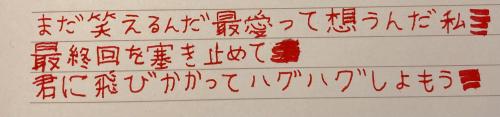 まだ笑えるんだ最愛って想うんだ私
最終回を塞き止めて
君に飛びかかってハグハグしよもう